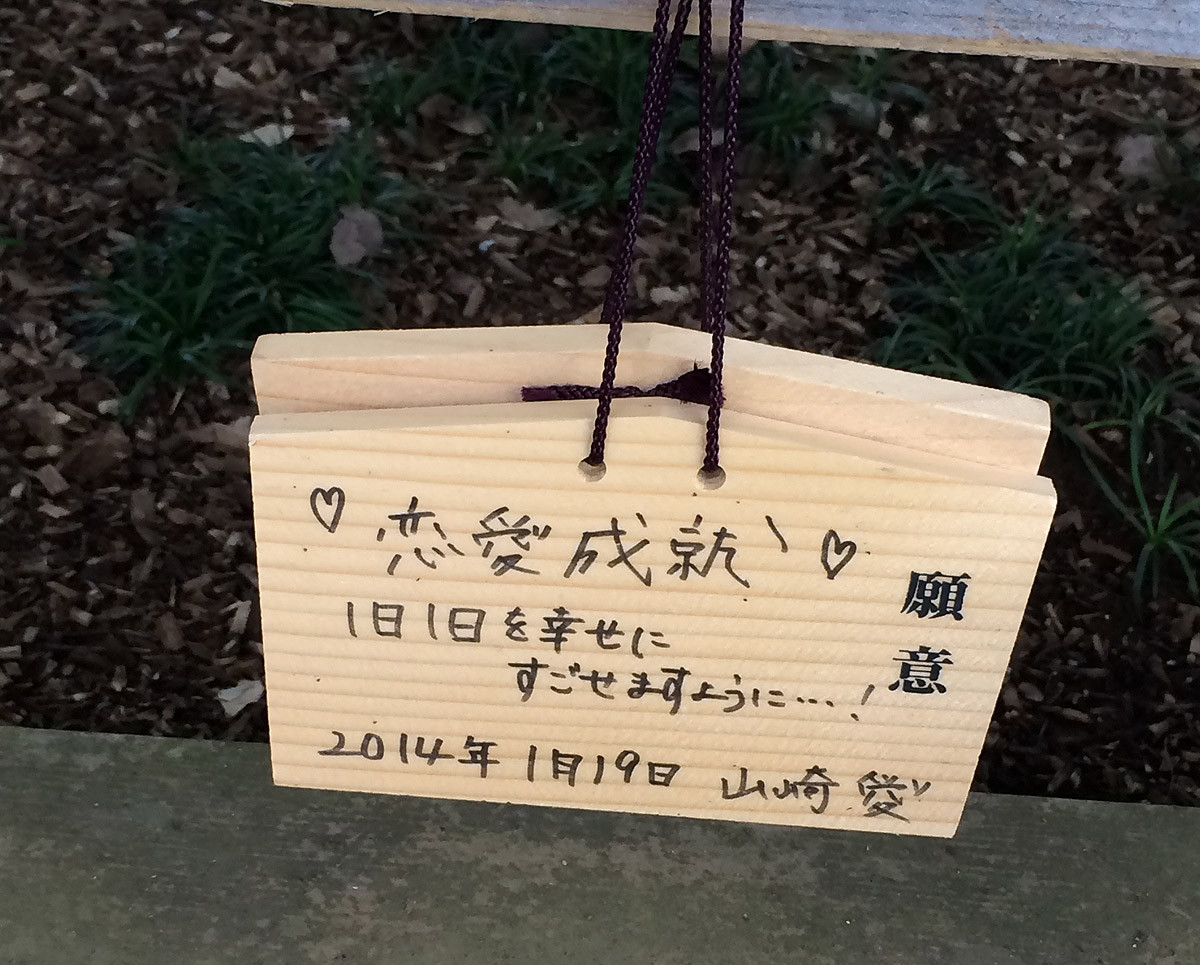 ♡恋愛成就♡
1日1日を幸せに
すごせますように…!
2014年1月19日 山崎愛
願意